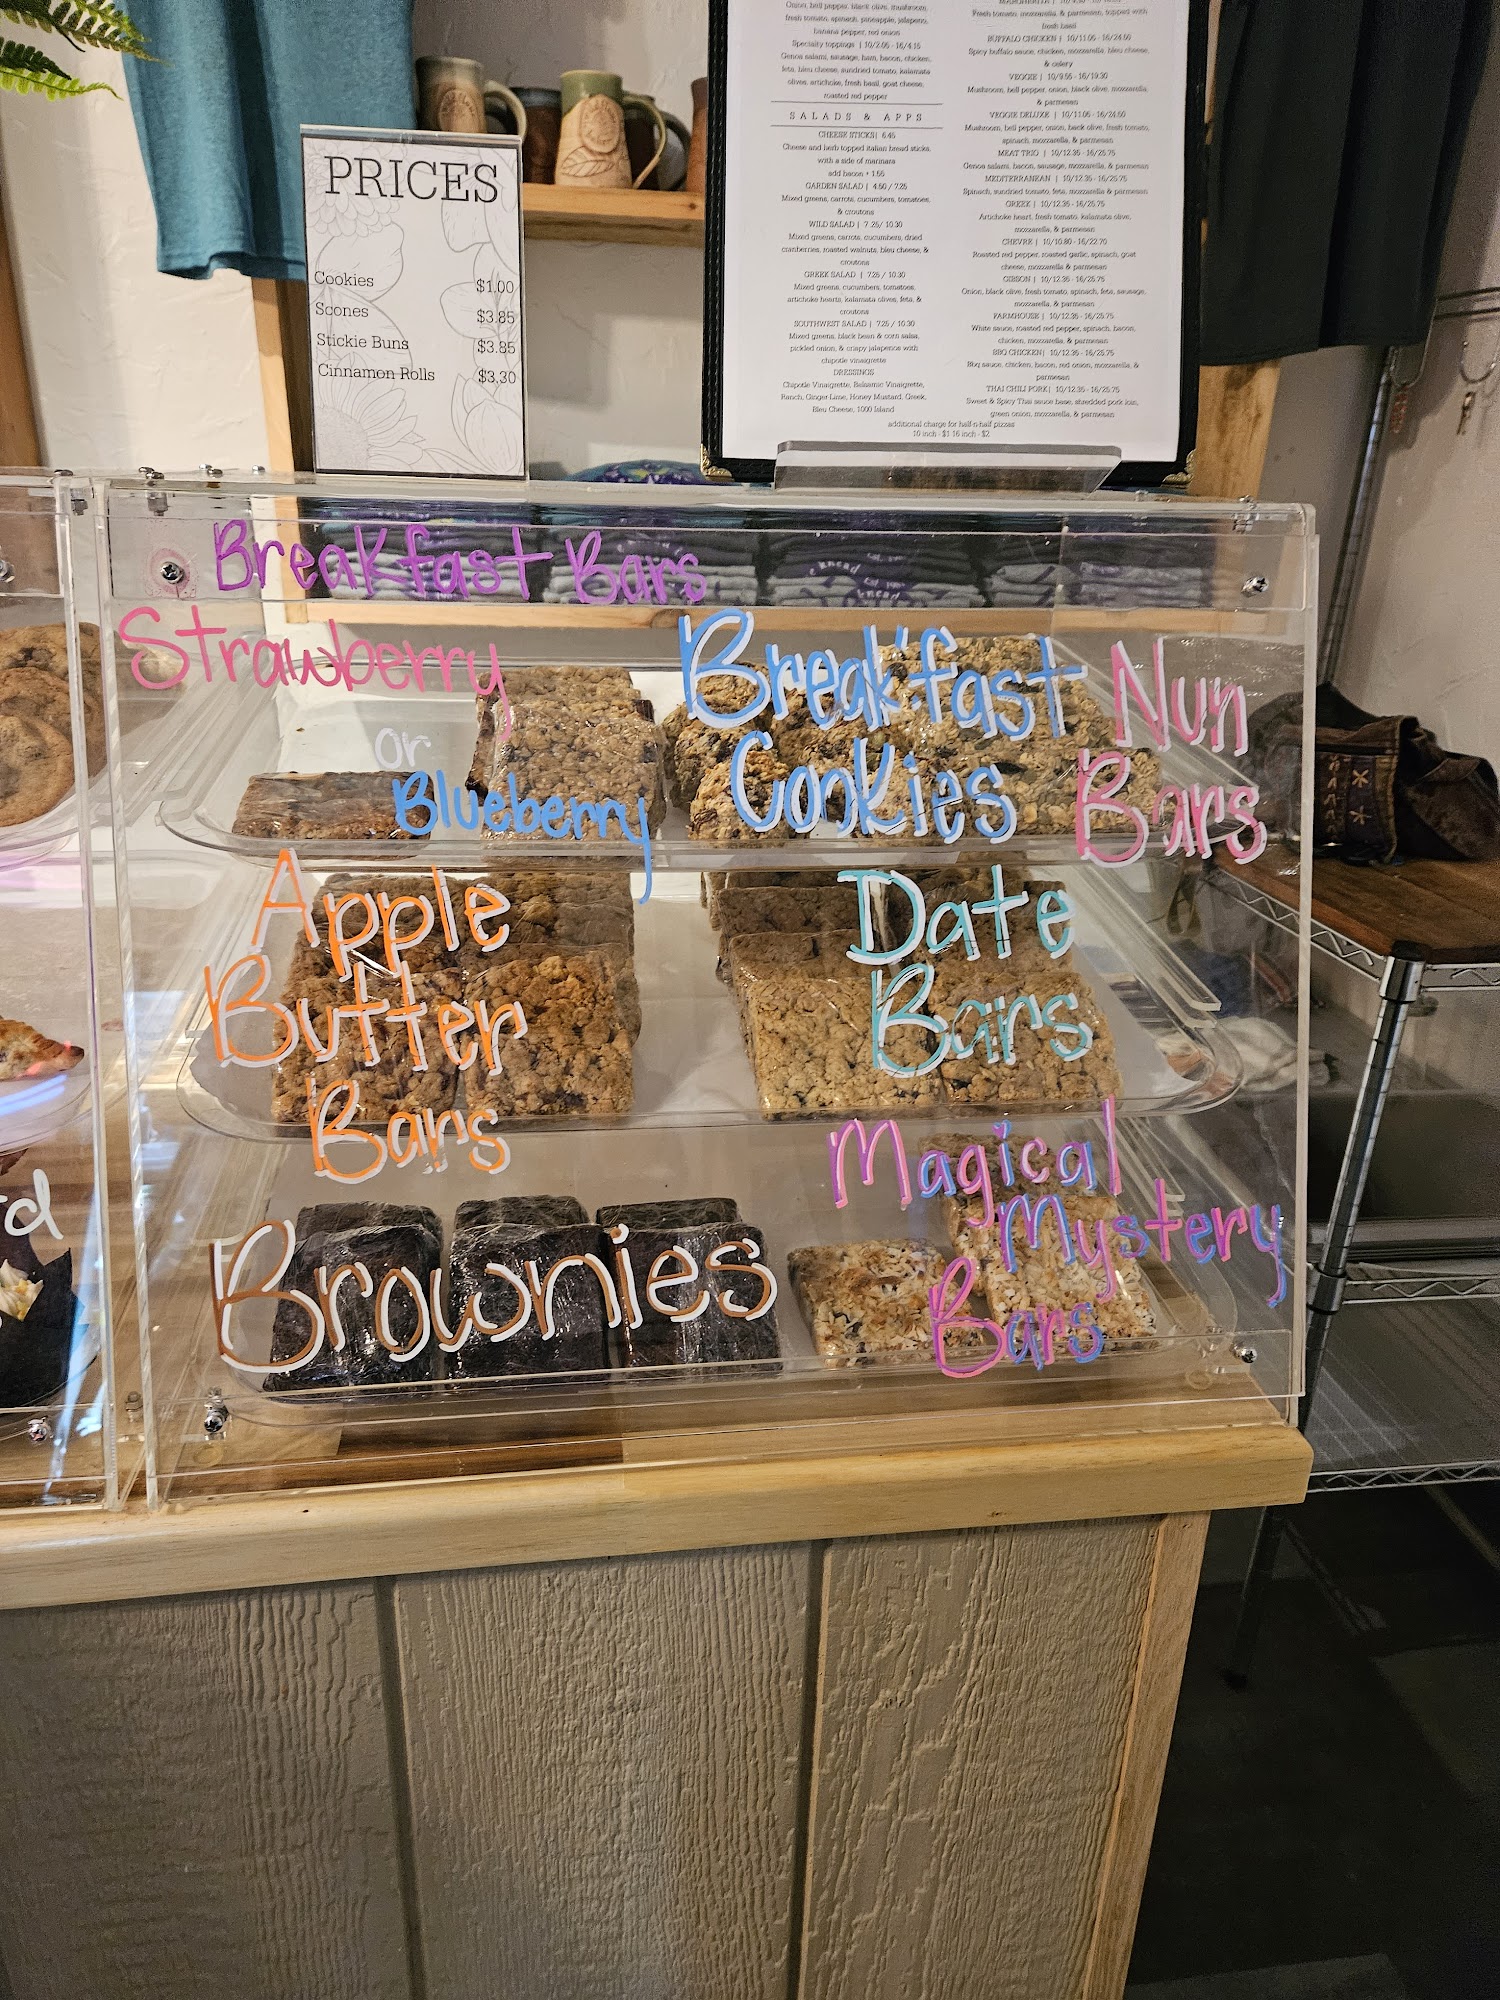 PRICES
Cookies $1.00
Scones $3.85
Stickie Buns $3.85
Cinnamon Rolls $3.30
Onion, bell pepper, black olive, mushroom,
fresh tomato, spinach, pineapple, jalapeno,
banana pepper, red onion
Specialty toppings | 10/2.05 - 16/4.15
Genoa salami, sausage, ham, bacon, chicken,
feta, bleu cheese, sundried tomato, kalamata
olives, artichoke, fresh basil, goat cheese,
roasted red pepper
SALADS & APPS
CHEESE STICKS| 6.45
Cheese and herb topped italian bread sticks,
with a side of marinara
add bacon + 1.55
GARDEN SALAD | 4.50 / 7.25
Mixed greens, carrots, cucumbers, tomatoes,
& croutons
WILD SALAD | 7.25/ 10.30
Mixed greens, carrots, cucumbers, dried
cranberries, roasted walnuts, bleu cheese, &
croutons
GREEK SALAD | 7.25 / 10.30
Mixed greens, cucumbers, tomatoes,
artichoke hearts, kalamata olives, feta, &
croutons
SOUTHWEST SALAD | 7.25 / 10.30
Mixed greens, black bean & corn salsa,
pickled onion, & crispy jalapenos with
chipotle vinaigrette
DRESSINGS
Chipotle Vinaigrette, Balsamic Vinaigrette,
Ranch, Ginger Lime, Honey Mustard, Greek,
Bleu Cheese, 1000 Island
Fresh tomato, mozzarella, & parmesan, topped with
fresh basil
BUFFALO CHICKEN | 10/11.05 - 16/24.60
Spicy buffalo sauce, chicken, mozzarella, bleu cheese,
& celery
VEGGIE | 10/9.55 - 16/19.30
Mushroom, bell pepper, onion, black olive, mozzarella,
& parmesan
VEGGIE DELUXE | 10/11.05 - 16/24.60
Mushroom, bell pepper, onion, black olive, fresh tomato,
spinach, mozzarella, & parmesan
MEAT TRIO | 10/12.35 - 16/25.75
Genoa salami, bacon, sausage, mozzarella, & parmesan
MEDITERRANEAN | 10/12.35 - 16/25.75
Spinach, sundried tomato, feta, mozzarella & parmesan
GREEK | 10/12.35 - 16/25.75
Artichoke heart, fresh tomato, kalamata olive,
mozzarella, & parmesan
CHEVRE | 10/10.80 - 16/22.70
Roasted red pepper, roasted garlic, spinach, goat
cheese, mozzarella & parmesan
GIBSON | 10/12.35 - 16/25.75
Onion, black olive, fresh tomato, spinach, feta, sausage,
mozzarella, & parmesan
FARMHOUSE | 10/12.35 - 16/25.75
White sauce, roasted red pepper, spinach, bacon,
chicken, mozzarella, & parmesan
BBQ CHICKEN| 10/12.35 - 16/25.75
Bbq sauce, chicken, bacon, red onion, mozzarella, &
parmesan
THAI CHILI PORK| 10/12.35 - 16/25.75
Sweet & Spicy Thai sauce base, shredded pork loin,
green onion, mozzarella, & parmesan
additional charge for half-n-half pizzas
10 inch - $1 16 inch - $2
Breakfast Bars
Strawberry
or
Blueberry
Breakfast
Cookies
Nun
Bars
Apple
Butter
Bars
Date
Bars
Brownies
Magical
Mystery
Bars